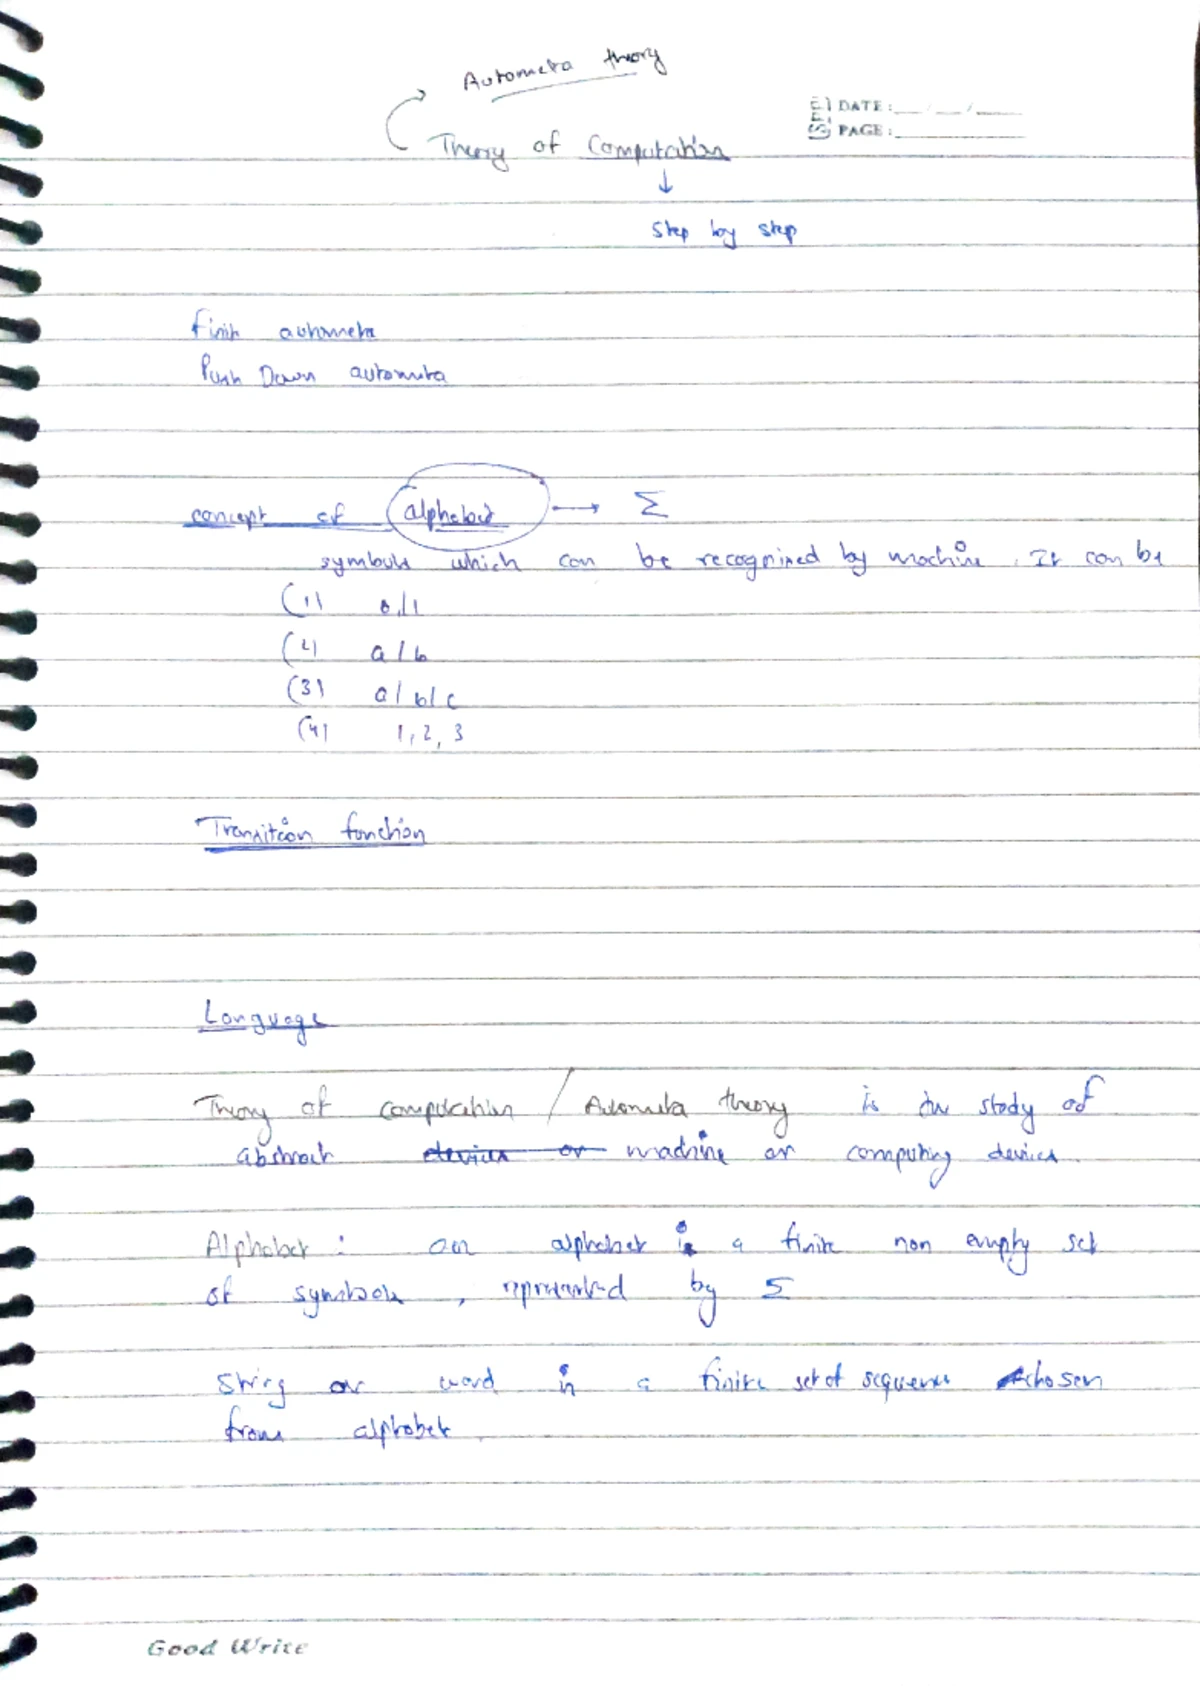 Autometa theory
DATE: __/__/____
PAGE:
Theory of Computation
↓
Step by step
finite autometa
Push Down autometa
concept of alphabet → Σ
symbols which can be recognized by machine. It can be
(1) 0/1
(2) a/b
(3) a/b/c
(4) 1,2,3
Transition function
Language
Theory of computation / Autometa theory is the study of
abstract devices or machine or computing devices.
Alphabet: an alphabet is a finite non empty set
of symbols, represented by Σ
String or word is a finite set of sequence chosen
from alphabet.
Good Write